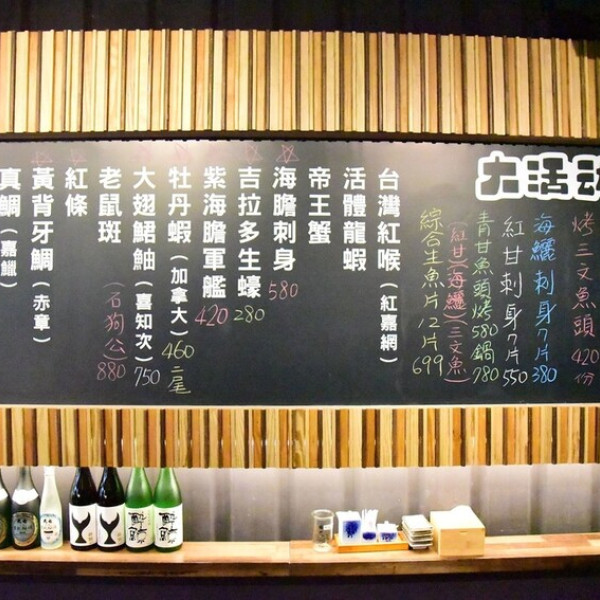 大活动
烤三文魚頭 420份
海鱺刺身7片 380
紅甘刺身7片 550
青甘魚頭烤580鍋780
(紅甘)(海鱺)(三文魚)
綜合生魚片12片 699
台灣紅喉(紅嘉網)
活體龍蝦
帝王蟹
海膽刺身 580
吉拉多生蠔 280
紫海膽軍艦 420
牡丹蝦(加拿大) 460二尾
大翅鮶鮋(喜知次) 750
老鼠斑(石狗公) 880
紅條
黃背牙鯛(赤章)
真鯛(嘉鱲)